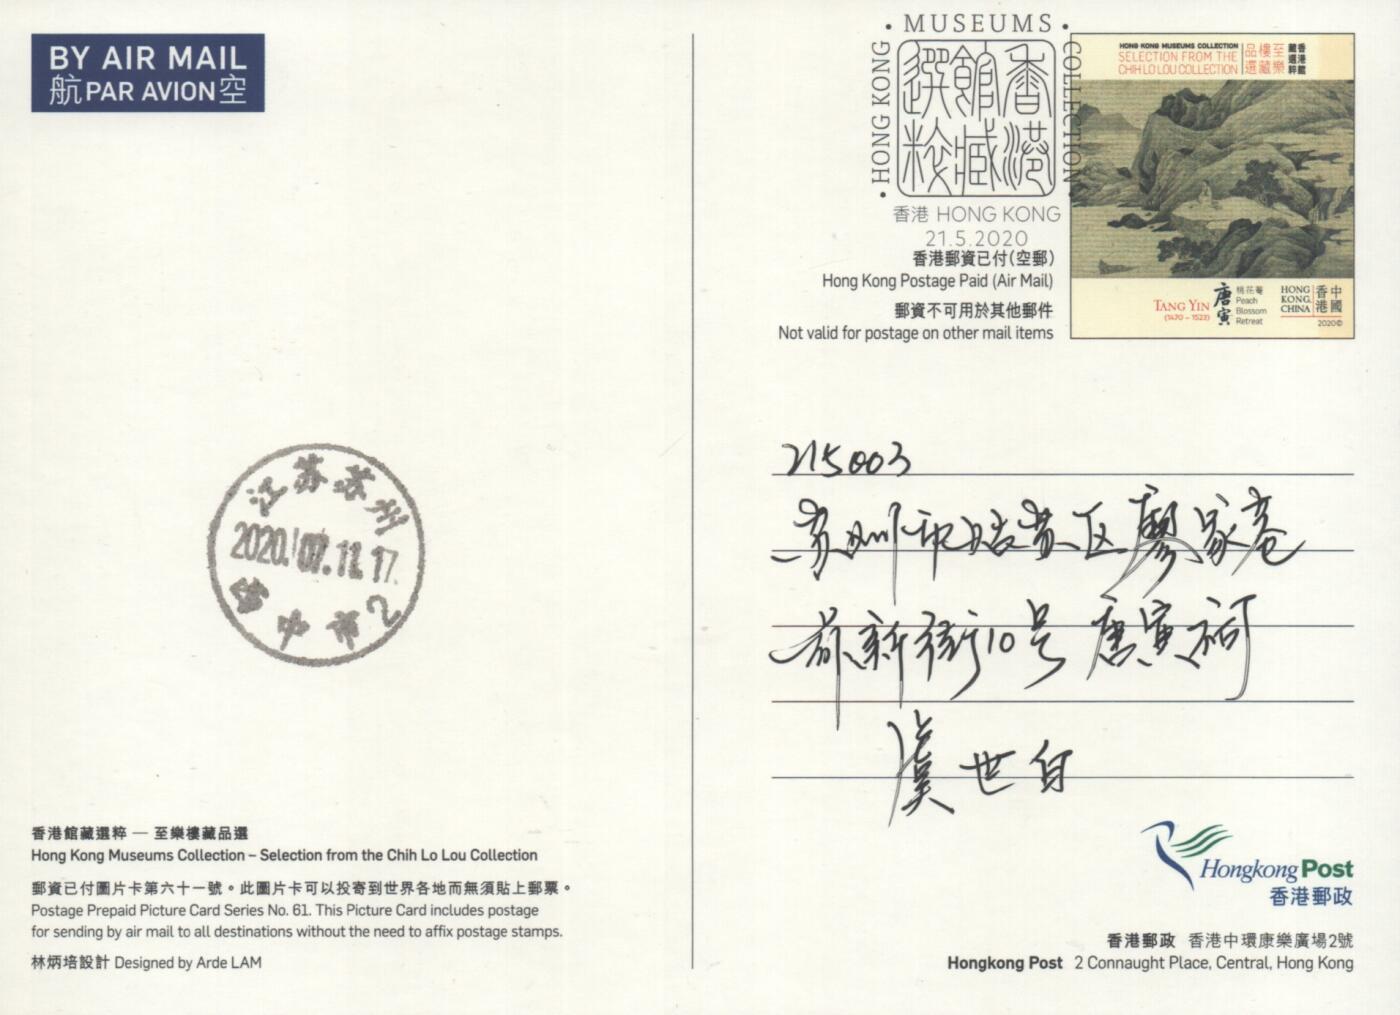 BY AIR MAIL
航 PAR AVION 空
• MUSEUMS •
• HONG KONG
COLLECTION •
香港館藏選粹
香港 HONG KONG
21.5.2020
香港郵資已付(空郵)
Hong Kong Postage Paid (Air Mail)
郵資不可用於其他郵件
Not valid for postage on other mail items
HONG KONG MUSEUMS COLLECTION
SELECTION FROM THE
CHIH LO LOU COLLECTION
至樂樓藏品選
香港館藏選粹
TANG YIN
(1470 – 1523)
唐寅
桃花庵
Peach
Blossom
Retreat
HONG
KONG,
CHINA
中國香港
2020©
215003
苏州市姑苏区廖家巷
前新街10号 唐寅祠
虞世自
江苏苏州
2020.07.11.17
中市2
香港館藏選粹 — 至樂樓藏品選
Hong Kong Museums Collection – Selection from the Chih Lo Lou Collection
郵資已付圖片卡第六十一號。此圖片卡可以投寄到世界各地而無須貼上郵票。
Postage Prepaid Picture Card Series No. 61. This Picture Card includes postage
for sending by air mail to all destinations without the need to affix postage stamps.
林炳培設計 Designed by Arde LAM
Hongkong Post
香港郵政
香港郵政 香港中環康樂廣場2號
Hongkong Post 2 Connaught Place, Central, Hong Kong